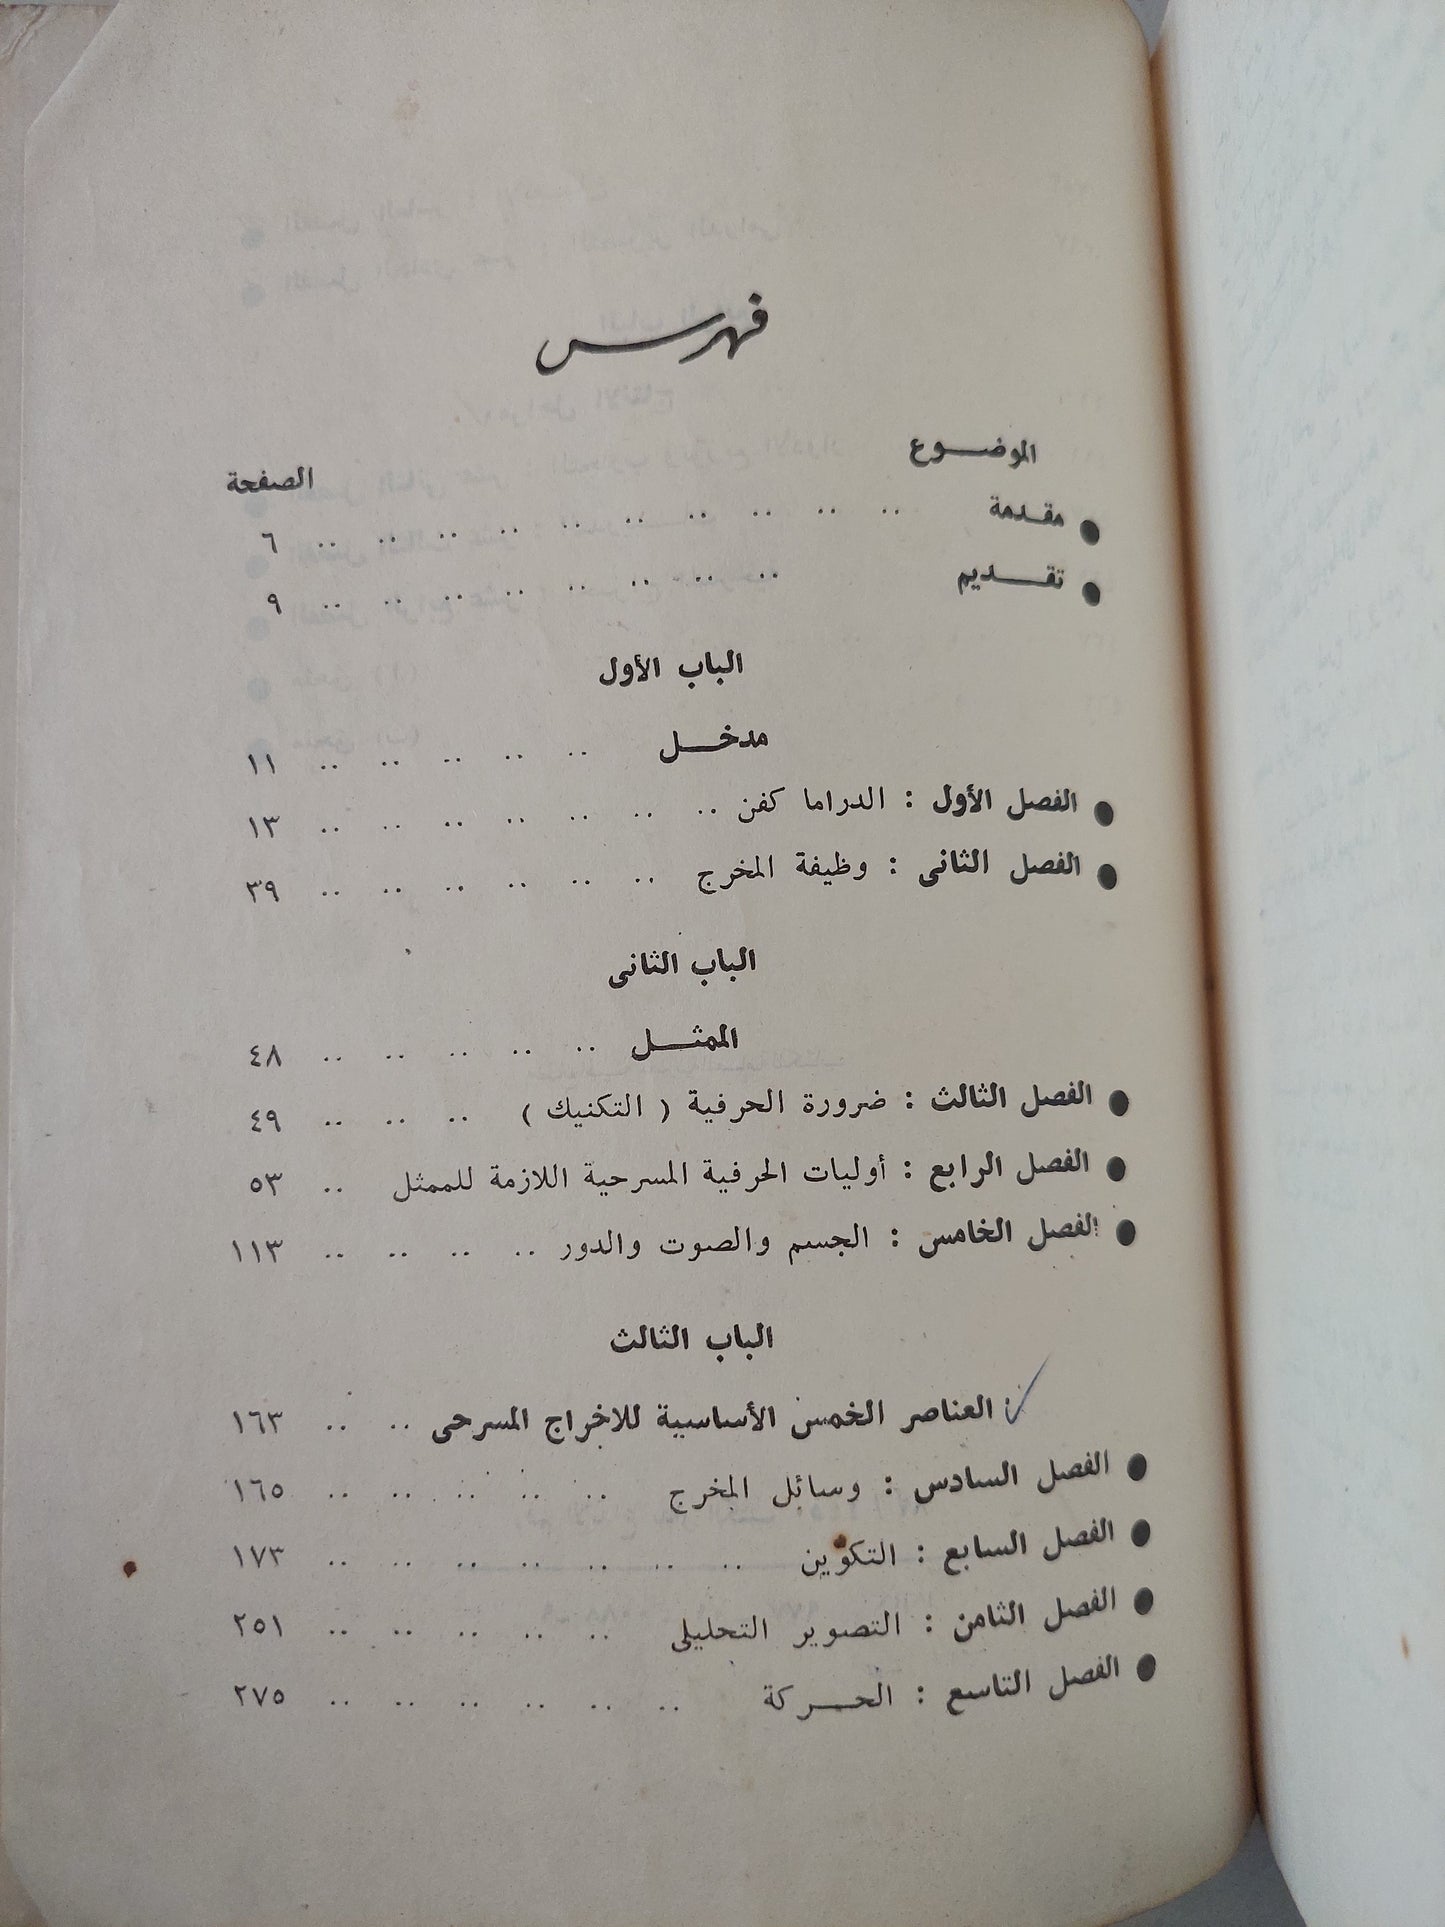 فهرس
الموضوع الصفحة
● مقدمة .. .. .. .. .. .. .. .. .. .. ٦
● تقديم .. .. .. .. .. .. .. .. ٩
الباب الأول
مدخل .. .. .. .. .. ١١
● الفصل الأول : الدراما كفن .. .. .. .. .. .. .. ١٣
● الفصل الثانى : وظيفة المخرج .. .. .. .. .. .. ٣٩
الباب الثانى
الممثل .. .. .. .. .. ٤٨
● الفصل الثالث : ضرورة الحرفية ( التكنيك ) .. .. .. ٤٩
● الفصل الرابع : أوليات الحرفية المسرحية اللازمة للممثل .. ٥٣
● الفصل الخامس : الجسم والصوت والدور .. .. .. .. ١١٣
الباب الثالث
العناصر الخمس الأساسية للاخراج المسرحى .. .. ١٦٣
● الفصل السادس : وسائل المخرج .. .. .. .. .. ١٦٥
● الفصل السابع : التكوين .. .. .. .. .. .. .. ١٧٣
● الفصل الثامن : التصوير التحليلى .. .. .. .. .. ٢٥١
● الفصل التاسع : الحركة .. .. .. .. .. .. ٢٧٥